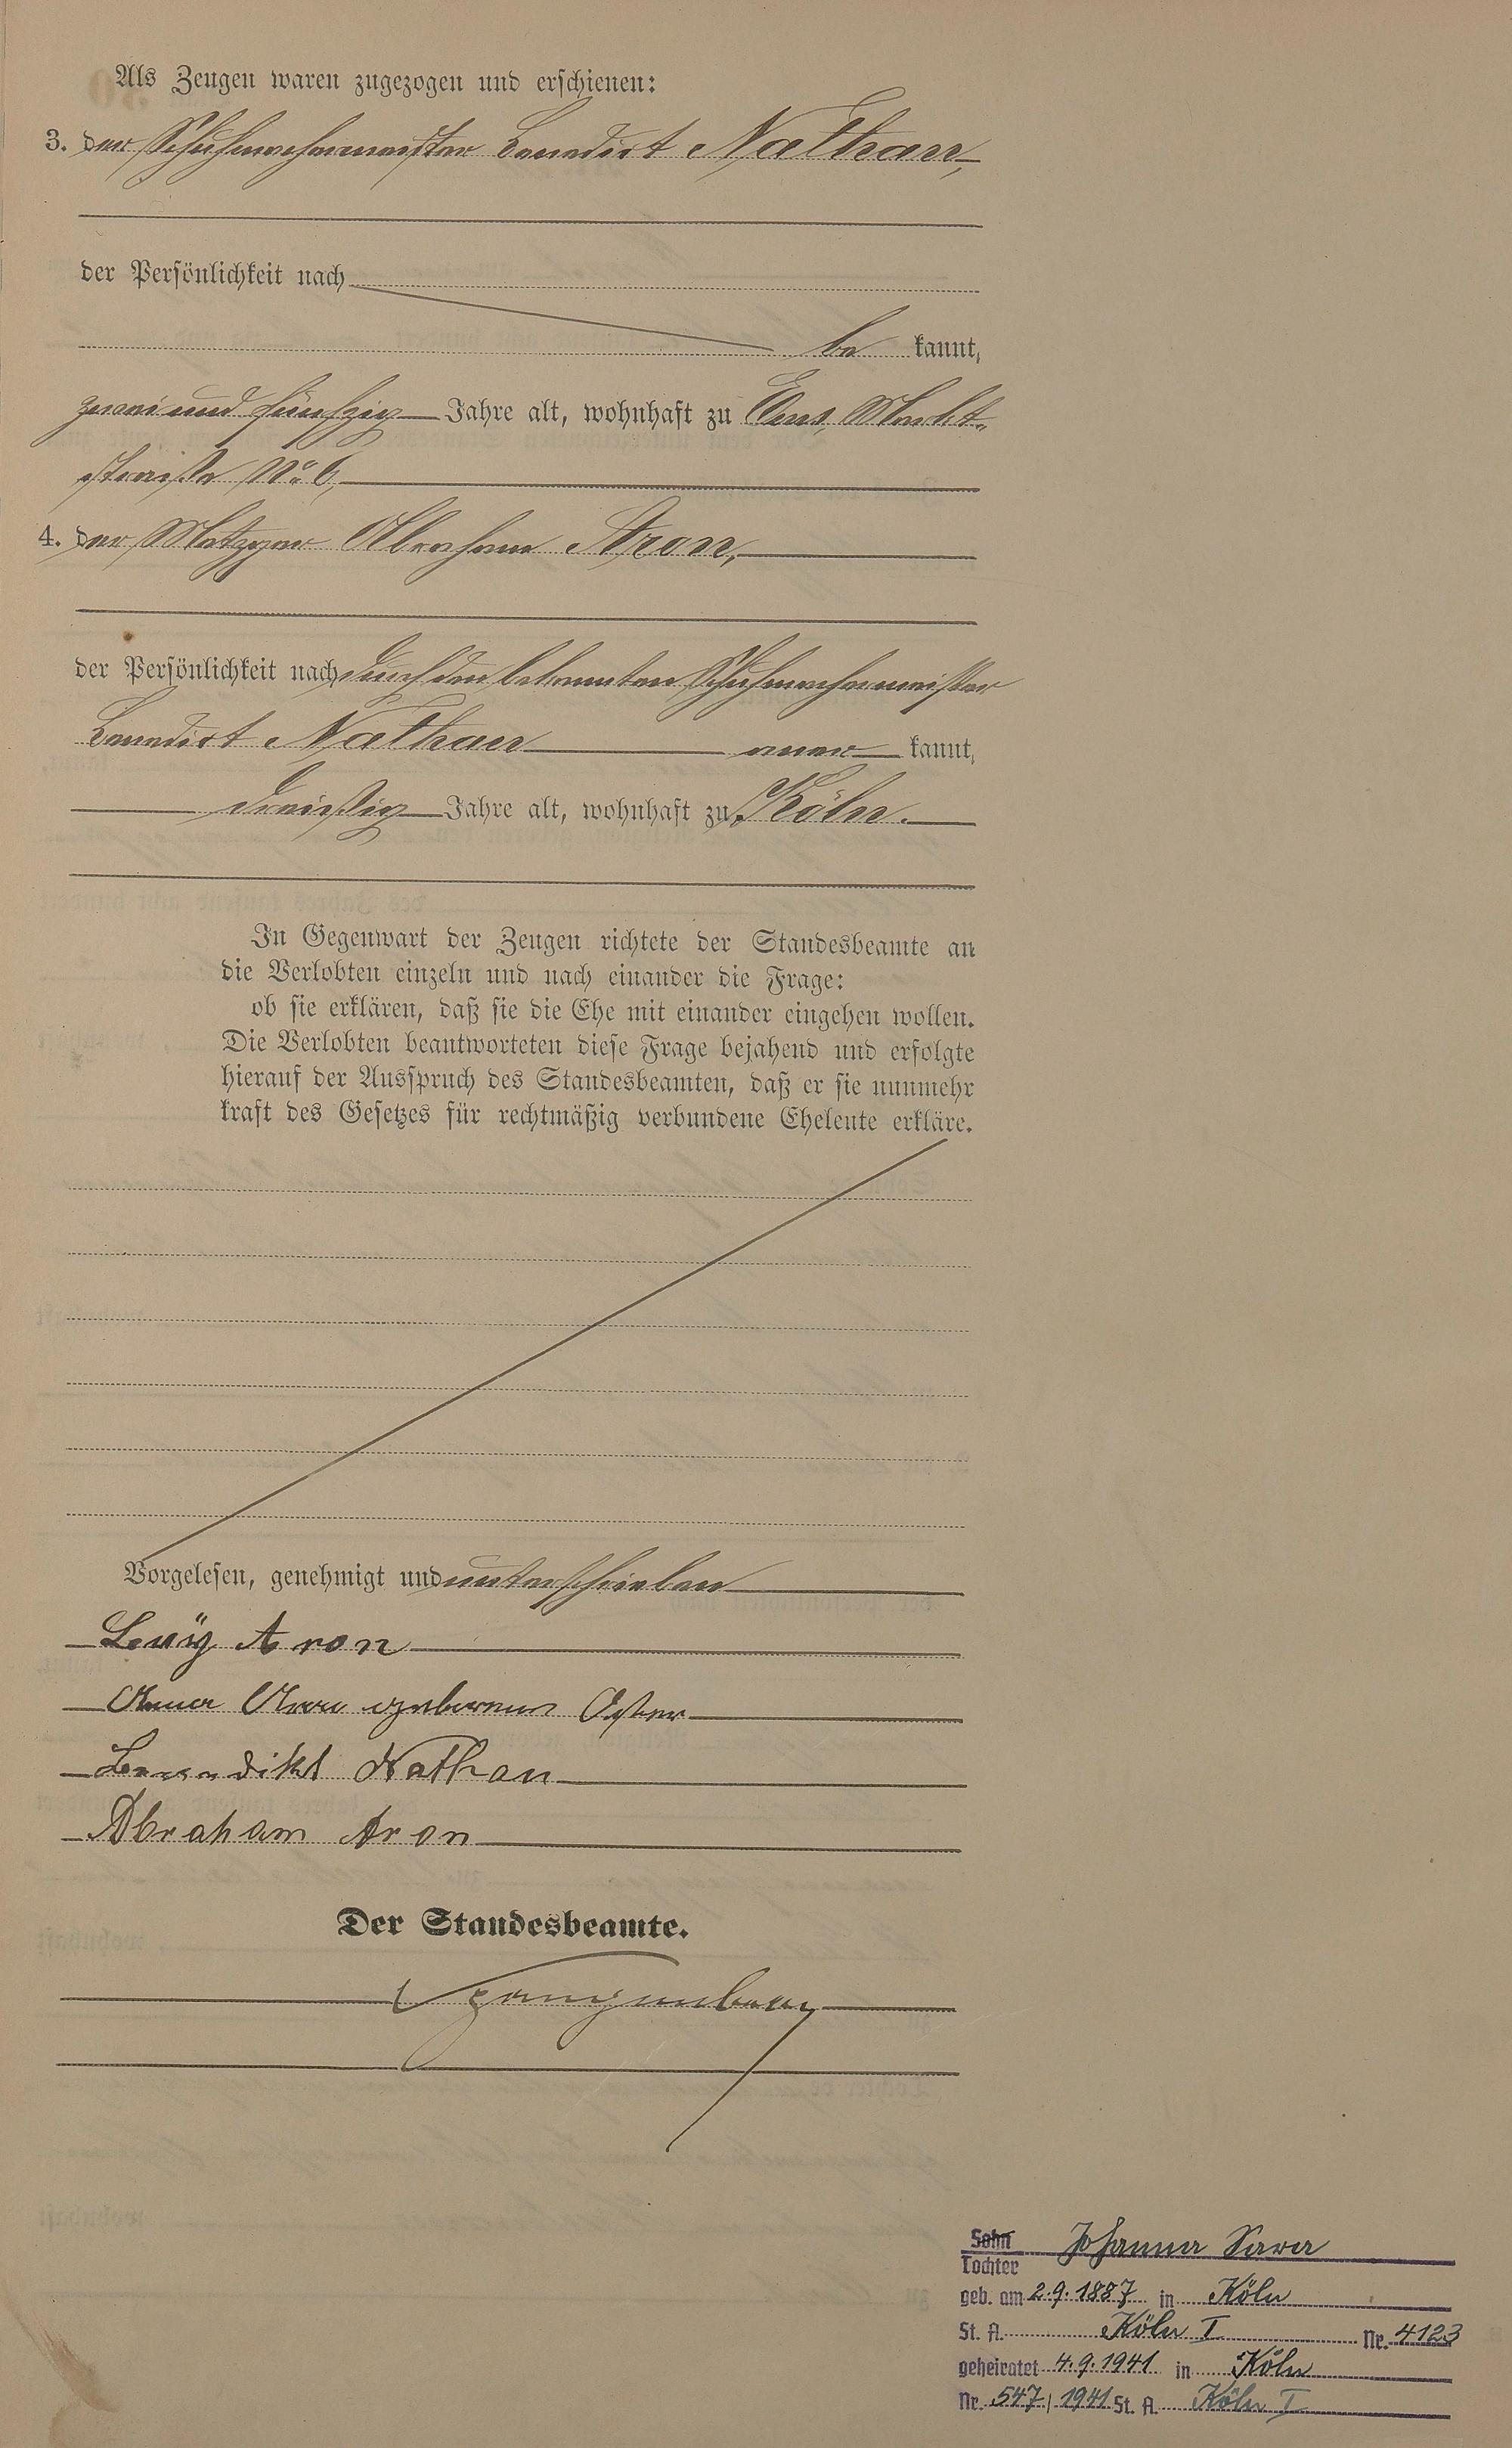 Als Zeugen waren zugezogen und erschienen:
3. der Schuhmachermeister Benedict Nathan,
der Persönlichkeit nach
be kannt,
zwei und fünfzig Jahre alt, wohnhaft zu Ems, Markt-
straße No 6,
4. der Metzger Abraham Aron,
der Persönlichkeit nach durch den bekannten Schuhmachermeister
Benedict Nathan aner kannt,
dreißig Jahre alt, wohnhaft zu Köln.
In Gegenwart der Zeugen richtete der Standesbeamte an
die Verlobten einzeln und nach einander die Frage:
ob sie erklären, daß sie die Ehe mit einander eingehen wollen.
Die Verlobten beantworteten diese Frage bejahend und erfolgte
hierauf der Ausspruch des Standesbeamten, daß er sie nunmehr
kraft des Gesetzes für rechtmäßig verbundene Eheleute erkläre.
Vorgelesen, genehmigt und unterschrieben
Levÿ Aron
Anna Aron geborene Oster
Benedikt Nathan
Abraham Aron
Der Standesbeamte.
Spangenberg
Sohn Johanna Sara
Tochter
geb. am 2.9.1887 in Köln
St. A. Köln I Nr. 4123
geheiratet 4.9.1941 in Köln
Nr. 547/1941 St. A. Köln I